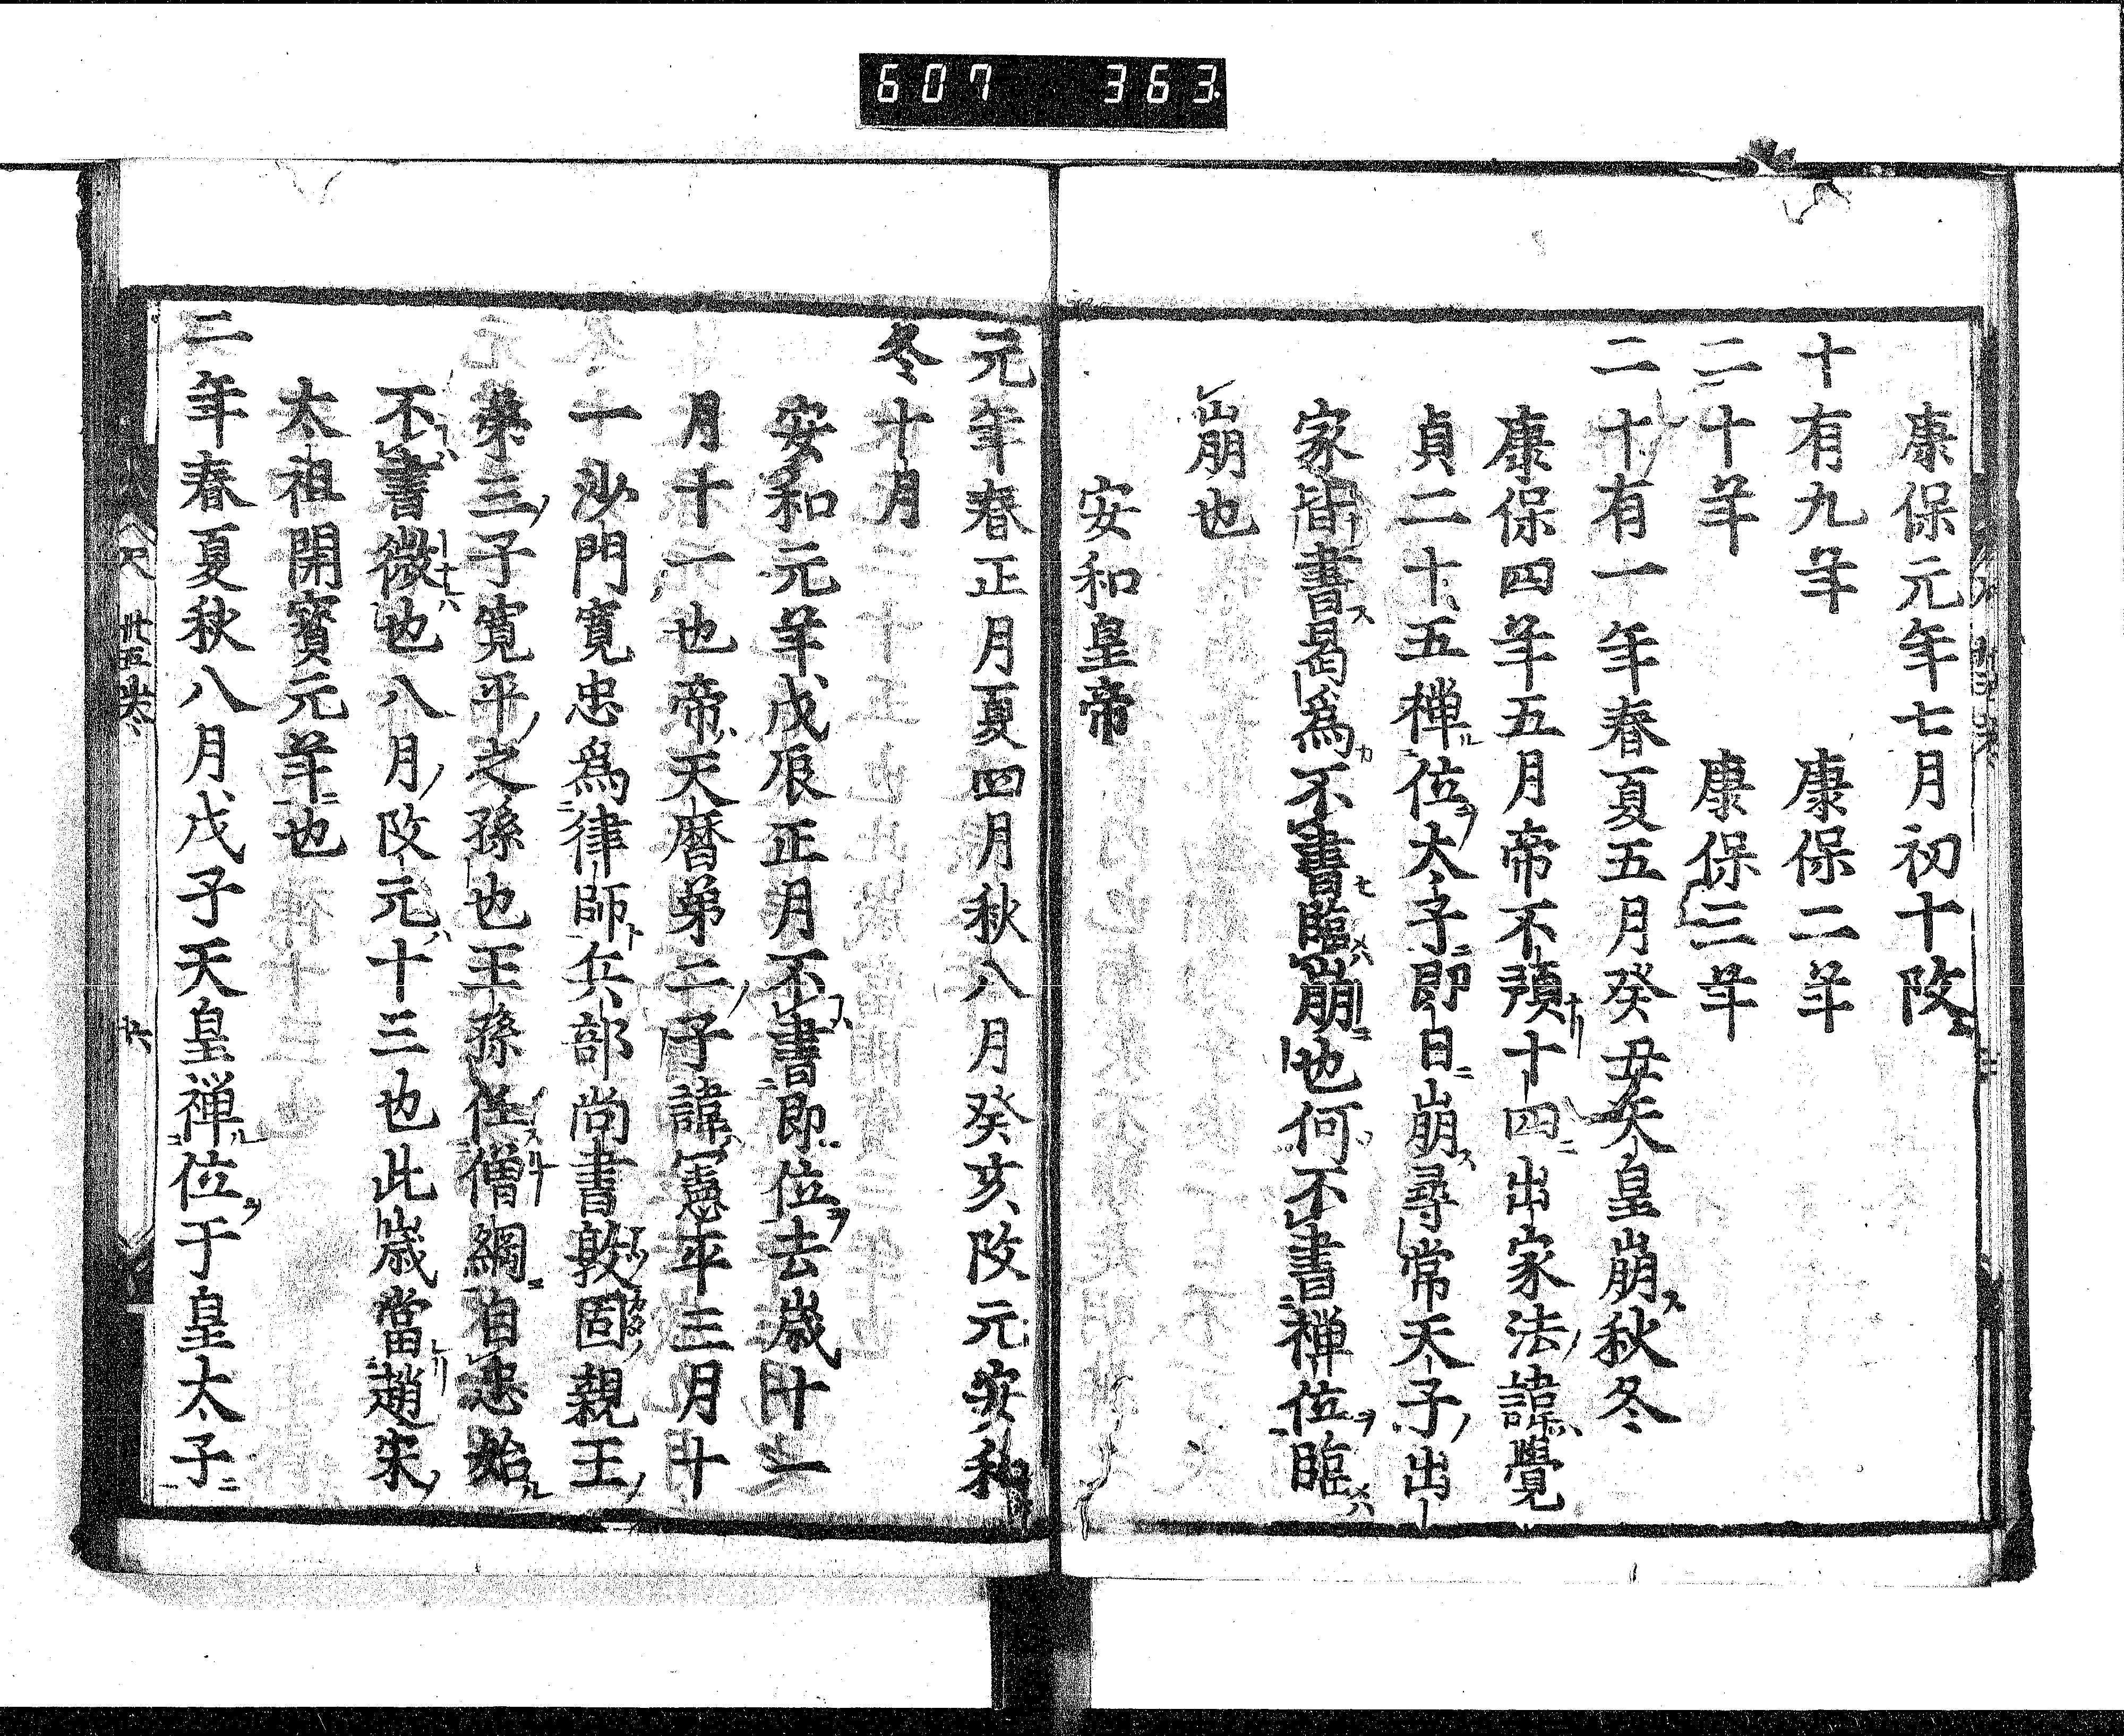 607 363
康保元年七月初十改
十有九年 康保二年
二十年 康保三年
二十有一年春夏五月癸丑天皇崩秋冬
康保四年五月帝不預十四出家法諱覺
貞二十五禪位太子即日崩尋常天子出
家皆書曷爲不書臨崩也何不書禅位臨
崩也
安和皇帝
元年春正月夏四月秋八月癸亥改元安和
冬十月
安和元年戊辰正月不書即位去歲十一
月十一也帝天曆弟二子諱憲平三月十
一沙門寬忠爲律師兵部尚書敦固親王
第三子寬平之孫也王孫任僧綱自忠始
不書微也八月改元十三也此歲當趙宋
太祖開寳元年也
二年春夏秋八月戊子天皇禅位于皇太子